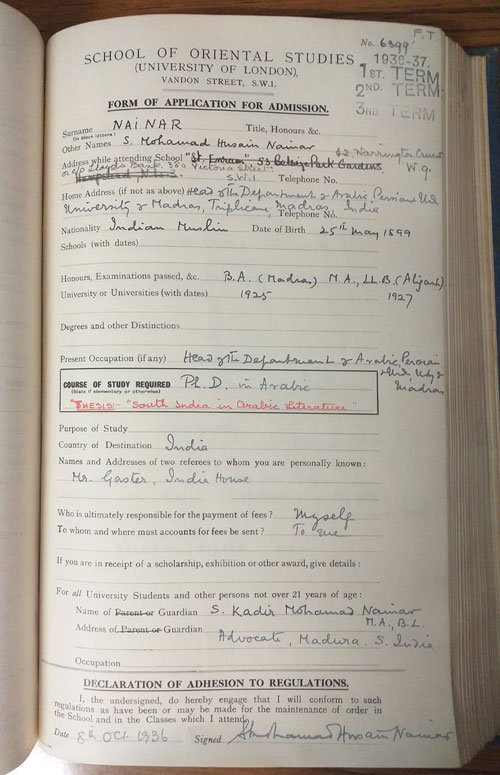 F.T
No. 6399
SCHOOL OF ORIENTAL STUDIES
(UNIVERSITY OF LONDON),
VANDON STREET, S.W.1.
1936-37.
1ST. TERM
2ND. TERM
3RD TERM
FORM OF APPLICATION FOR ADMISSION.
Surname NAINAR Title, Honours &c.
(in block letters)
Other Names S. Mohamad Husain Nainar
42 Warrington Crescent
W.9.
Address while attending School "St. Ermin" 53 Belsize Park Gardens,
or c/o Lloyds Bank, Victoria Street
Hampstead, N.W.3. S.W.1 Telephone No.
Home Address (if not as above) Head of the Department of Arabic Persian Urdu
University of Madras, Triplicane, Madras, India
Telephone No.
Nationality Indian Muslim Date of Birth 25th May 1899
Schools (with dates)
Honours, Examinations passed, &c. B.A. (Madras) M.A., LL.B. (Aligarh)
University or Universities (with dates) 1925 1927
Degrees and other Distinctions
Present Occupation (if any) Head of the Department of Arabic, Persian
& Urdu, Uty of
Madras
COURSE OF STUDY REQUIRED Ph.D. in Arabic
(State if elementary or otherwise)
THESIS:- "South India in Arabic Literature."
Purpose of Study
Country of Destination India
Names and Addresses of two referees to whom you are personally known:
Mr. Gaster, India House
Who is ultimately responsible for the payment of fees? Myself
To whom and where must accounts for fees be sent? To me
If you are in receipt of a scholarship, exhibition or other award, give details:
For all University Students and other persons not over 21 years of age:
Name of Parent or Guardian S. Kadir Mohamad Nainar
M.A., B.L.
Address of Parent or Guardian Advocate, Madura, S. India
Occupation
DECLARATION OF ADHESION TO REGULATIONS.
I, the undersigned, do hereby engage that I will conform to such
regulations as have been or may be made for the maintenance of order in
the School and in the Classes which I attend.
Date 8th Oct 1936 Signed S. Mohamad Husain Nainar